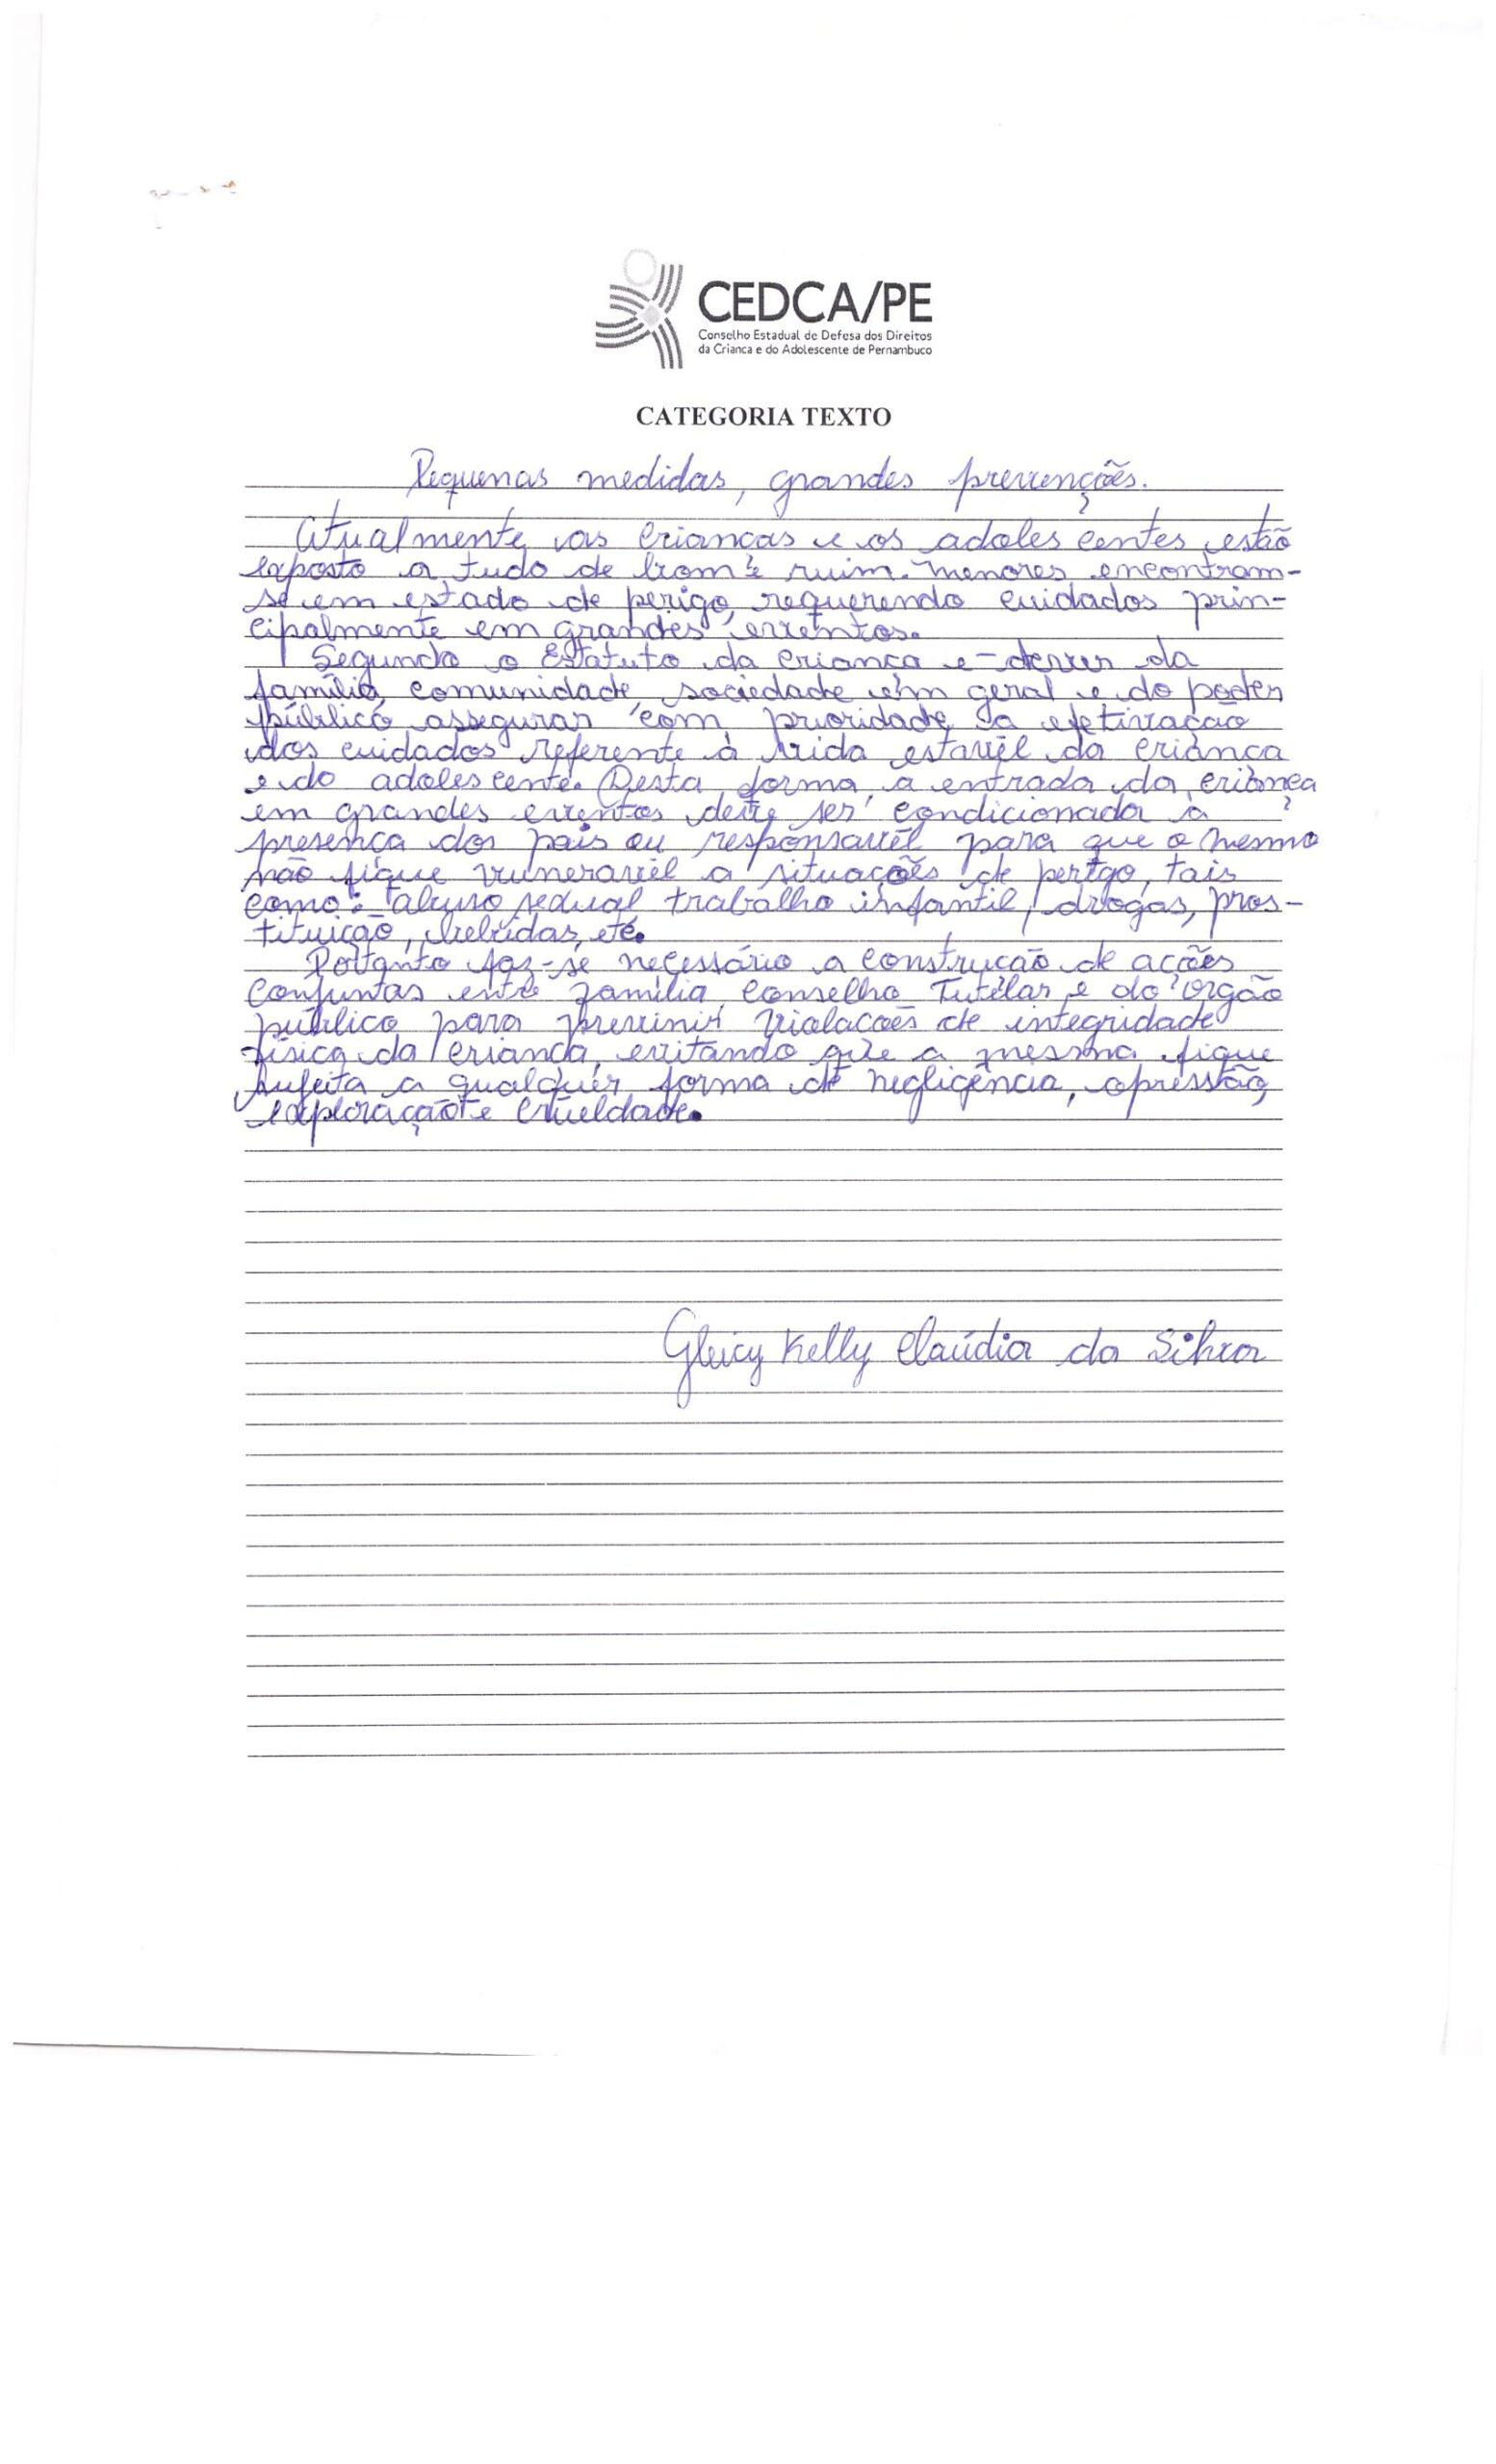 CEDCA/PE
Conselho Estadual de Defesa dos Direitos
da Crianca e do Adolescente de Pernambuco
CATEGORIA TEXTO
Pequenas medidas, grandes prevenções.
Atualmente, as crianças e os adoles centes estão
exposto a tudo de bom e ruim. menores encontram-
se em estado de perigo, requerendo cuidados prin-
cipalmente em grandes eventos.
Segundo o Estatuto da criança e dever da
família, comunidade, sociedade em geral e do poder
público assegurar com prioridade a efetivação
dos cuidados referente à vida estavél da criança
e do adoles cente. Desta forma, a entrada da criança
em grandes eventos deve ser condicionada à
presença dos pais ou responsavél para que o mesmo
não fique vuneravél a situações de perigo, tais
como: abuso sexual, trabalho infantil, drogas, pros-
tituição, bebidas, etc.
Portanto faz-se necessário a construção de ações
conjuntas entre família, Conselho Tutelar e do orgão
público para prevenir violações de integridade
física da criança, evitando que a mesma fique
sujeita a qualquer forma de negligência, opressão,
exploração e crueldade.
Gleicy Kelly Claúdia da Silva